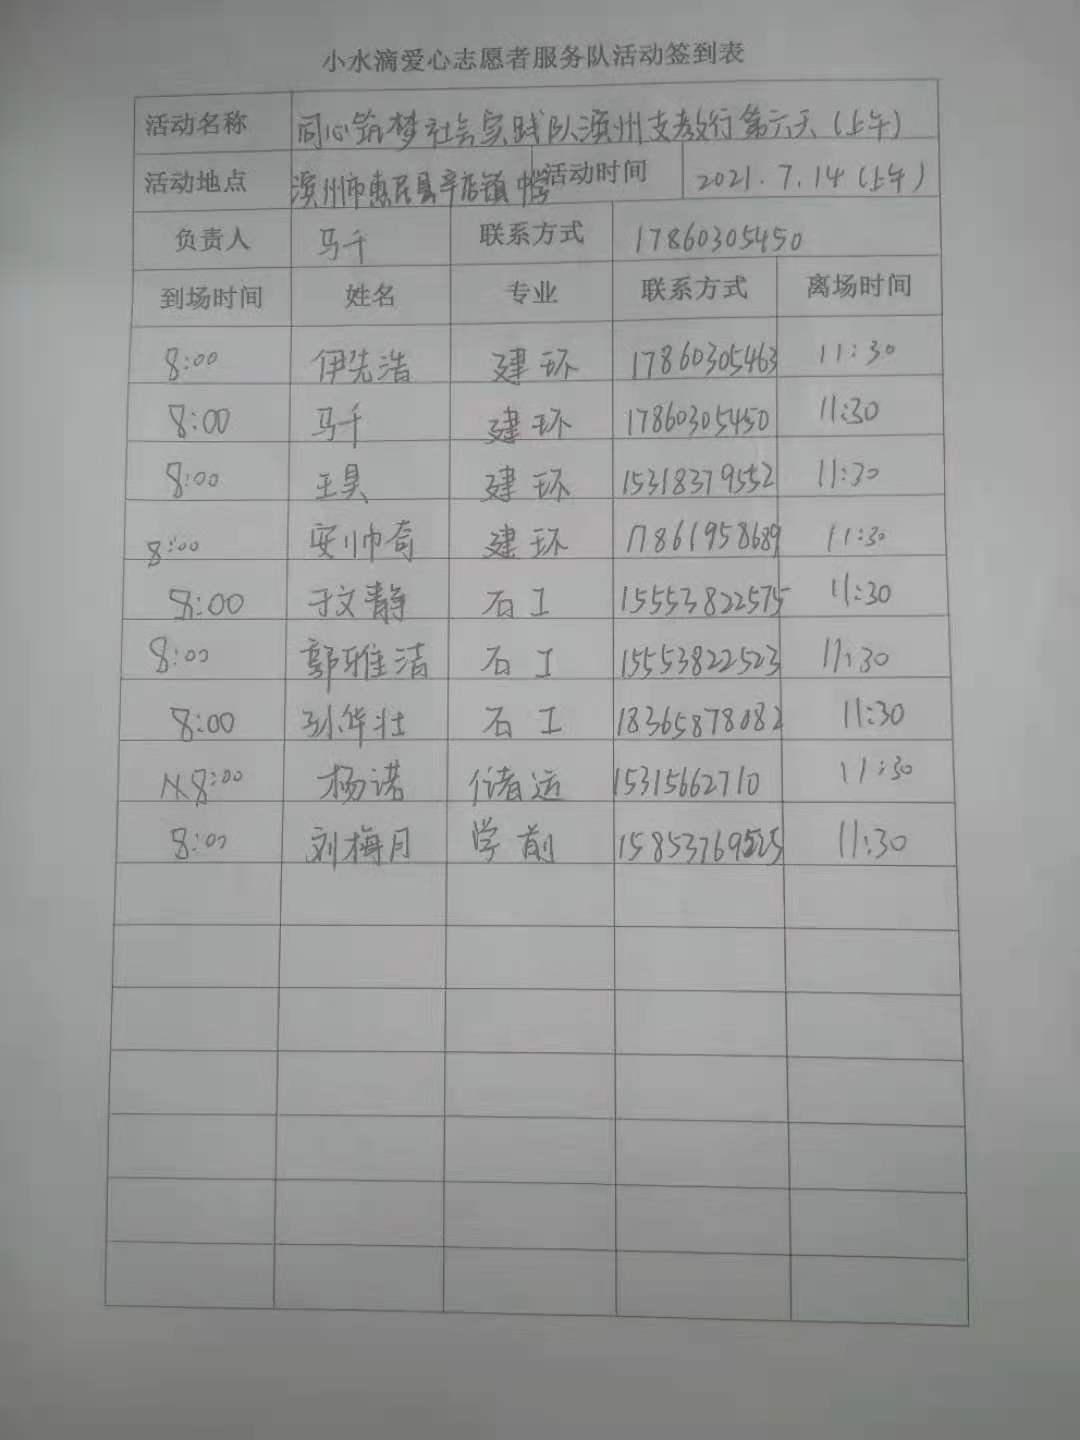 小水滴爱心志愿者服务队活动签到表
活动名称 同心筑梦社会实践队滨州支教行第六天(上午)
活动地点 滨州市惠民县辛店镇中学 活动时间 2021.7.14(上午)
负责人 马千 联系方式 17860305450
到场时间 姓名 专业 联系方式 离场时间
8:00 伊先浩 建环 17860305463 11:30
8:00 马千 建环 17860305450 11:30
8:00 王昊 建环 15318379552 11:30
8:00 安帅奇 建环 17861958689 11:30
8:00 于文静 石工 15553822575 11:30
8:00 郭雅洁 石工 15553822523 11:30
8:00 孙华壮 石工 18365878082 11:30
8:00 杨诺 储运 15315662710 11:30
8:00 刘梅月 学前 11:30